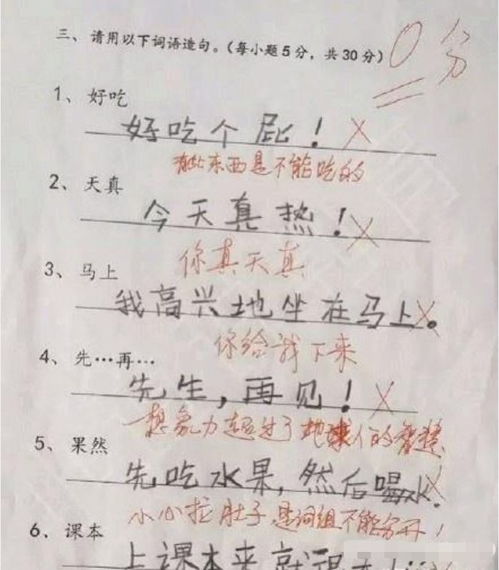 三、请用以下词语造句。（每小题5分，共30分）
0分
1、好吃
好吃个屁！
有些东西是不能吃的
2、天真
今天真热！
你真天真
3、马上
我高兴地坐在马上。
你给我下来
4、先…再…
先生，再见！
想象力超过了地球人的智慧
5、果然
先吃水果，然后喝水
小心拉肚子是词组不能分开！
6、课本
上课本来就